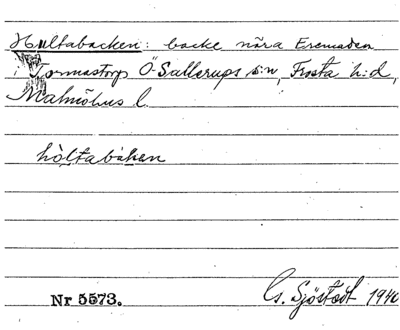 Hultabacken: backe nära Eremaden
i Tormastorp Ö-Sallerups s:n, Frosta h:d,
Malmöhus l.
hòltabàken
Nr 5573.
G. Sjöstedt 1940